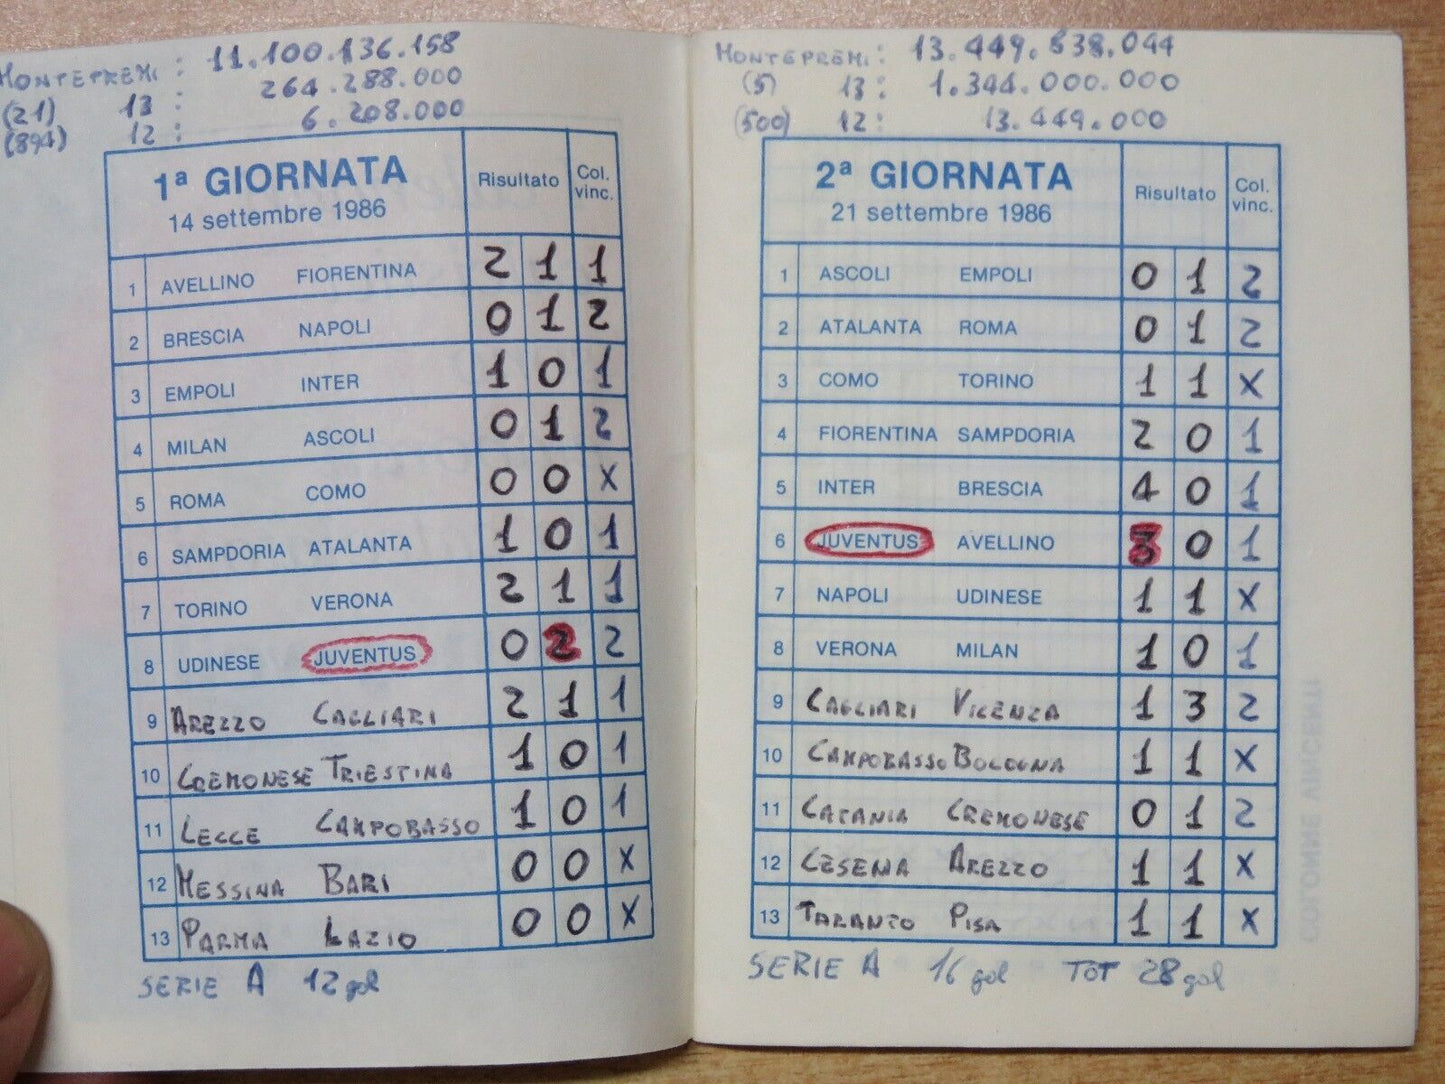 MONTEPREMI : 11.100.136.158
(21) 13 : 264.288.000
(894) 12 : 6.208.000
1ª GIORNATA Risultato Col. vinc.
14 settembre 1986
1 AVELLINO FIORENTINA 2 1 1
2 BRESCIA NAPOLI 0 1 2
3 EMPOLI INTER 1 0 1
4 MILAN ASCOLI 0 1 2
5 ROMA COMO 0 0 X
6 SAMPDORIA ATALANTA 1 0 1
7 TORINO VERONA 2 1 1
8 UDINESE JUVENTUS 0 2 2
9 AREZZO CAGLIARI 2 1 1
10 CREMONESE TRIESTINA 1 0 1
11 LECCE CAMPOBASSO 1 0 1
12 MESSINA BARI 0 0 X
13 PARMA LAZIO 0 0 X
SERIE A 12 gol
MONTEPREMI : 13.449.838.044
(5) 13 : 1.344.000.000
(500) 12 : 13.449.000
2ª GIORNATA Risultato Col. vinc.
21 settembre 1986
1 ASCOLI EMPOLI 0 1 2
2 ATALANTA ROMA 0 1 2
3 COMO TORINO 1 1 X
4 FIORENTINA SAMPDORIA 2 0 1
5 INTER BRESCIA 4 0 1
6 JUVENTUS AVELLINO 3 0 1
7 NAPOLI UDINESE 1 1 X
8 VERONA MILAN 1 0 1
9 CAGLIARI VICENZA 1 3 2
10 CAMPOBASSO BOLOGNA 1 1 X
11 CATANIA CREMONESE 0 1 2
12 CESENA AREZZO 1 1 X
13 TARANTO PISA 1 1 X
SERIE A 16 gol TOT 28 gol